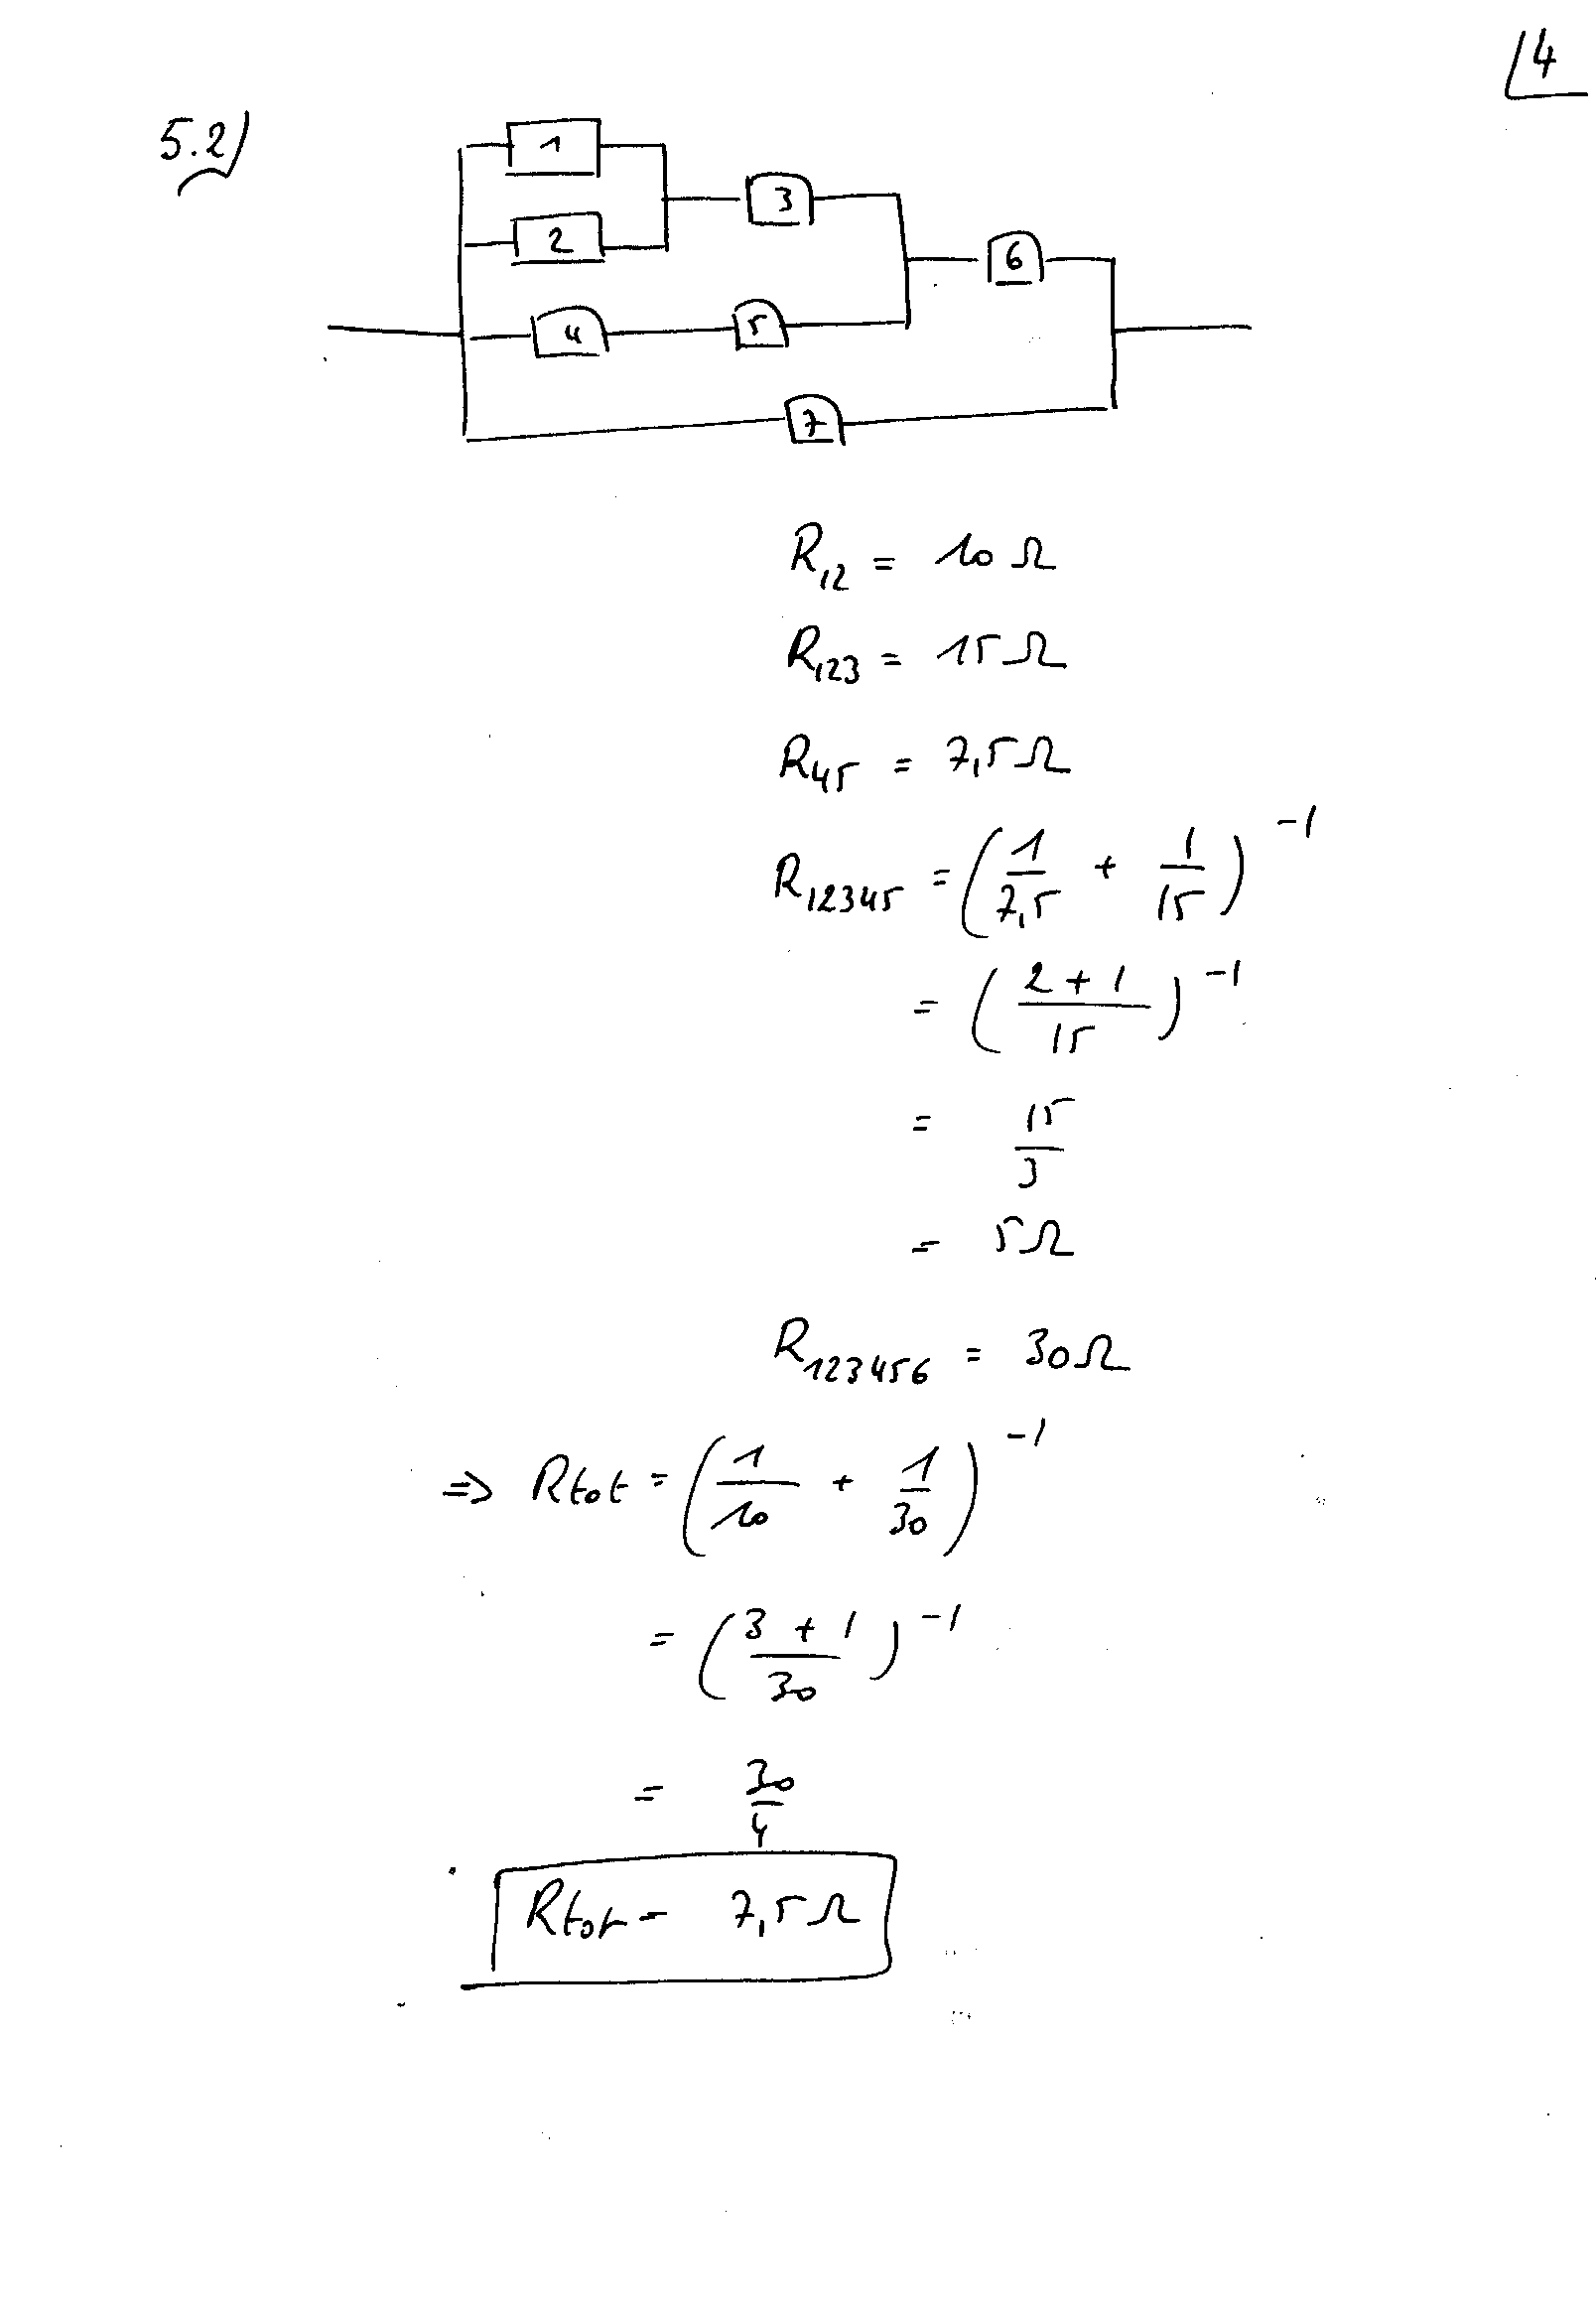 4
5.2)
1
3
2
6
4
5
7
R₁₂ = 10 Ω
R₁₂₃ = 15 Ω
R₄₅ = 7,5 Ω
R₁₂₃₄₅ = (1/7,5 + 1/15)⁻¹
= (2 + 1/15)⁻¹
= 15/3
= 5 Ω
R₁₂₃₄₅₆ = 30 Ω
⇒ Rtot = (1/10 + 1/30)⁻¹
= (3 + 1/30)⁻¹
= 30/4
Rtot = 7,5 Ω